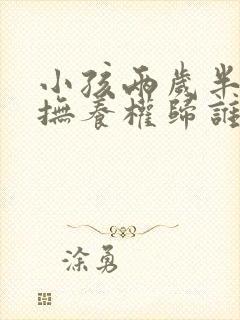 小孩兩歲半
撫養權歸誰
涂勇